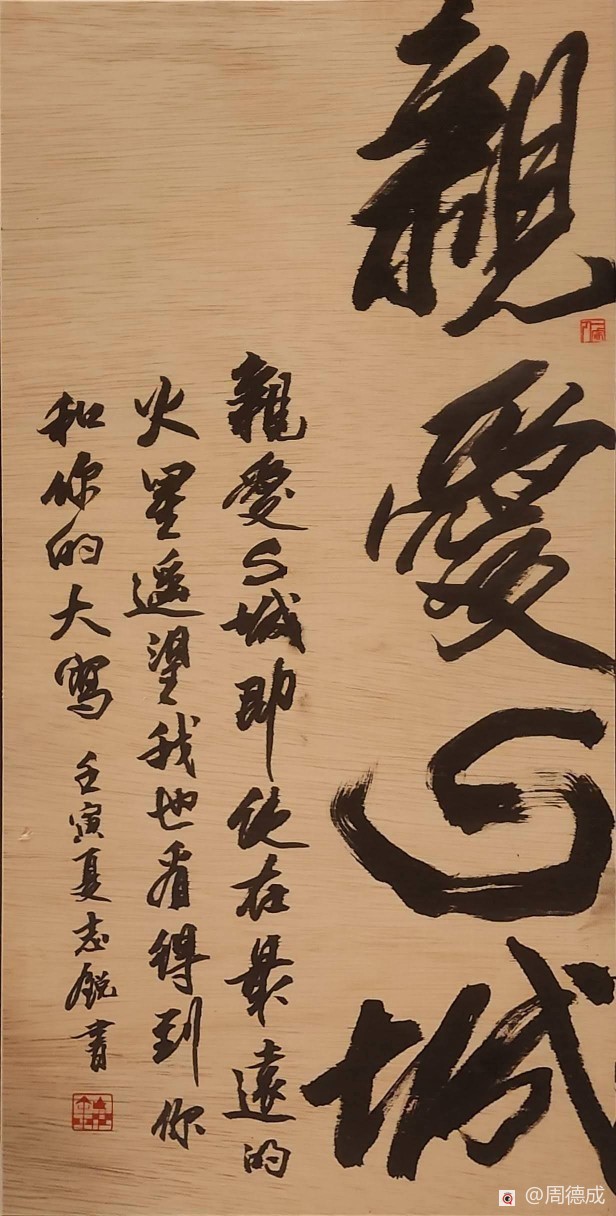 親愛S城
親愛S城即使在最遠的
火星遥望我也看得到你
和你的大寫 壬寅夏志銳書
@周德成